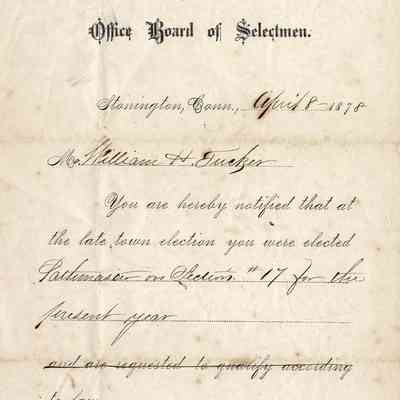 Office Board of Selectmen.
Stonington, Conn., April 8 1878
Mr. William H. Tucker
You are hereby notified that at
the late town election you were elected
Pathmaster on Section "17 for the
present year
and are requested to qualify according
to law